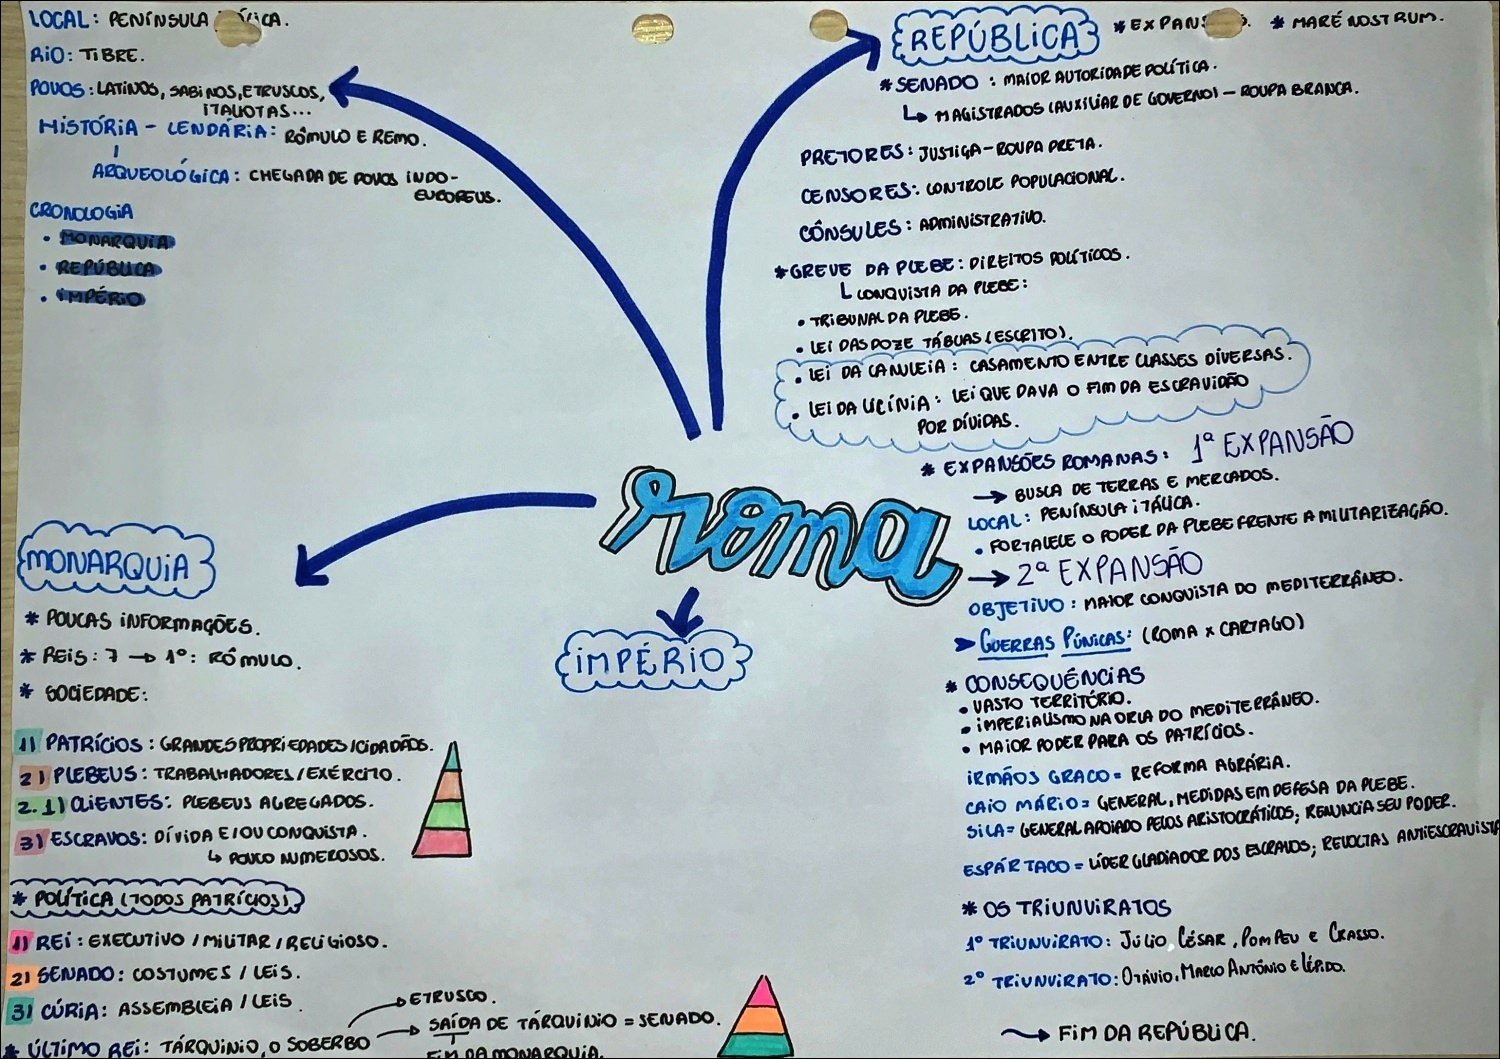 LOCAL: PENÍNSULA
RIO: TIBRE.
POVOS: LATINOS, SABINOS, ETRUSCOS,
ITALIOTAS...
HISTÓRIA - LENDÁRIA: RÔMULO E REMO.
ARQUEOLÓGICA: CHEGADA DE POVOS INDO-
EUROPEUS.
CRONOLOGIA
• MONARQUIA
• REPÚBLICA
• IMPÉRIO
REPÚBLICA
* MARÉ NOSTRUM.
* SENADO: MAIOR AUTORIDADE POLÍTICA.
↳ MAGISTRADOS (AUXILIAR DE GOVERNO) - ROUPA BRANCA.
PRETORES: JUSTIÇA - ROUPA PRETA.
CENSORES: CONTROLE POPULACIONAL.
CÔNSULES: ADMINISTRATIVO.
* GREVE DA PLEBE: DIREITOS POLÍTICOS.
↳ CONQUISTA DA PLEBE:
• TRIBUNAL DA PLEBE.
• LEI DAS DOZE TÁBUAS (ESCRITO).
• LEI DA CANULEIA: CASAMENTO ENTRE CLASSES DIVERSAS.
• LEI DA LICÍNIA: LEI QUE DAVA O FIM DA ESCRAVIDÃO
POR DÍVIDAS.
* EXPANSÕES ROMANAS: 1ª EXPANSÃO
→ BUSCA DE TERRAS E MERCADOS.
LOCAL: PENÍNSULA ITÁLICA.
• FORTALELE O PODER DA PLEBE FRENTE A MILITARIZAÇÃO.
→ 2ª EXPANSÃO
OBJETIVO: MAIOR CONQUISTA DO MEDITERRÂNEO.
➤ GUERRAS PÚNICAS: (ROMA X CARTAGO)
* CONSEQUÊNCIAS
• VASTO TERRITÓRIO.
• IMPERIALISMO NA ORLA DO MEDITERRÂNEO.
• MAIOR PODER PARA OS PATRÍCIOS.
IRMÃOS GRACO = REFORMA AGRÁRIA.
CAIO MÁRIO = GENERAL, MEDIDAS EM DEFESA DA PLEBE.
SILA = GENERAL APOIADO PELOS ARISTOCRÁTICOS; RENUNCIA SEU PODER.
ESPÁRTACO = LÍDER GLADIADOR DOS ESCRAVOS; REVOLTAS ANTIESCRAVISTA
* OS TRIUNVIRATOS
1º TRIUNVIRATO: JÚLIO CÉSAR, POMPEU E CRASSO.
2º TRIUNVIRATO: OTÁVIO, MARCO ANTÔNIO E LÉPIDO.
→ FIM DA REPÚBLICA.
roma
IMPÉRIO
MONARQUIA
* POUCAS INFORMAÇÕES.
* REIS: 7 → 1º: RÔMULO.
* SOCIEDADE:
1) PATRÍCIOS: GRANDES PROPRIEDADES / CIDADÃOS.
2) PLEBEUS: TRABALHADORES / EXÉRCITO.
2.1) CLIENTES: PLEBEUS AGREGADOS.
3) ESCRAVOS: DÍVIDA E/OU CONQUISTA.
↳ POUCO NUMEROSOS.
* POLÍTICA (TODOS PATRÍCIOS)
1) REI: EXECUTIVO / MILITAR / RELIGIOSO.
2) SENADO: COSTUMES / LEIS.
3) CÚRIA: ASSEMBLEIA / LEIS
* ÚLTIMO REI: TÁRQUINIO, O SOBERBO
→ ETRUSCO.
→ SAÍDA DE TÁRQUINIO = SENADO.
FIM DA MONARQUIA.